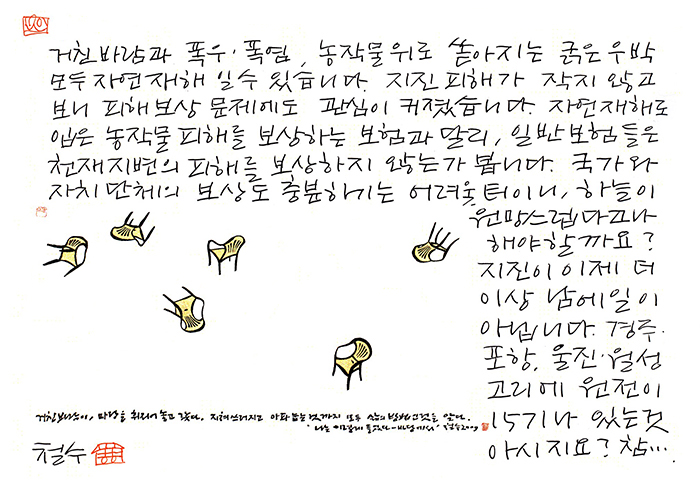 거친 바람과 폭우·폭염, 농작물 위로 쏟아지는 굵은 우박
모두 자연재해일 수 있습니다. 지진 피해가 작지 않고
보니 피해보상 문제에도 관심이 커졌습니다. 자연재해로
입은 농작물 피해를 보상하는 보험과 달리, 일반보험들은
천재지변의 피해를 보상하지 않는가 봅니다. 국가와
자치단체의 보상도 충분하기는 어려울 터이니, 하늘이
원망스럽다고나
해야 할까요?
지진이 이제 더
이상 남에 일이
아닙니다. 경주·
포항, 울진·월성
고리에 원전이
15기나 있는 것
아시지요? 참….
거친 바람이, 마당을 휘저어 놓고 갔다. 지쳐 쓰러지고 아파 눕는 것까지 모두 삶의 방법인 것을 안다.
철수